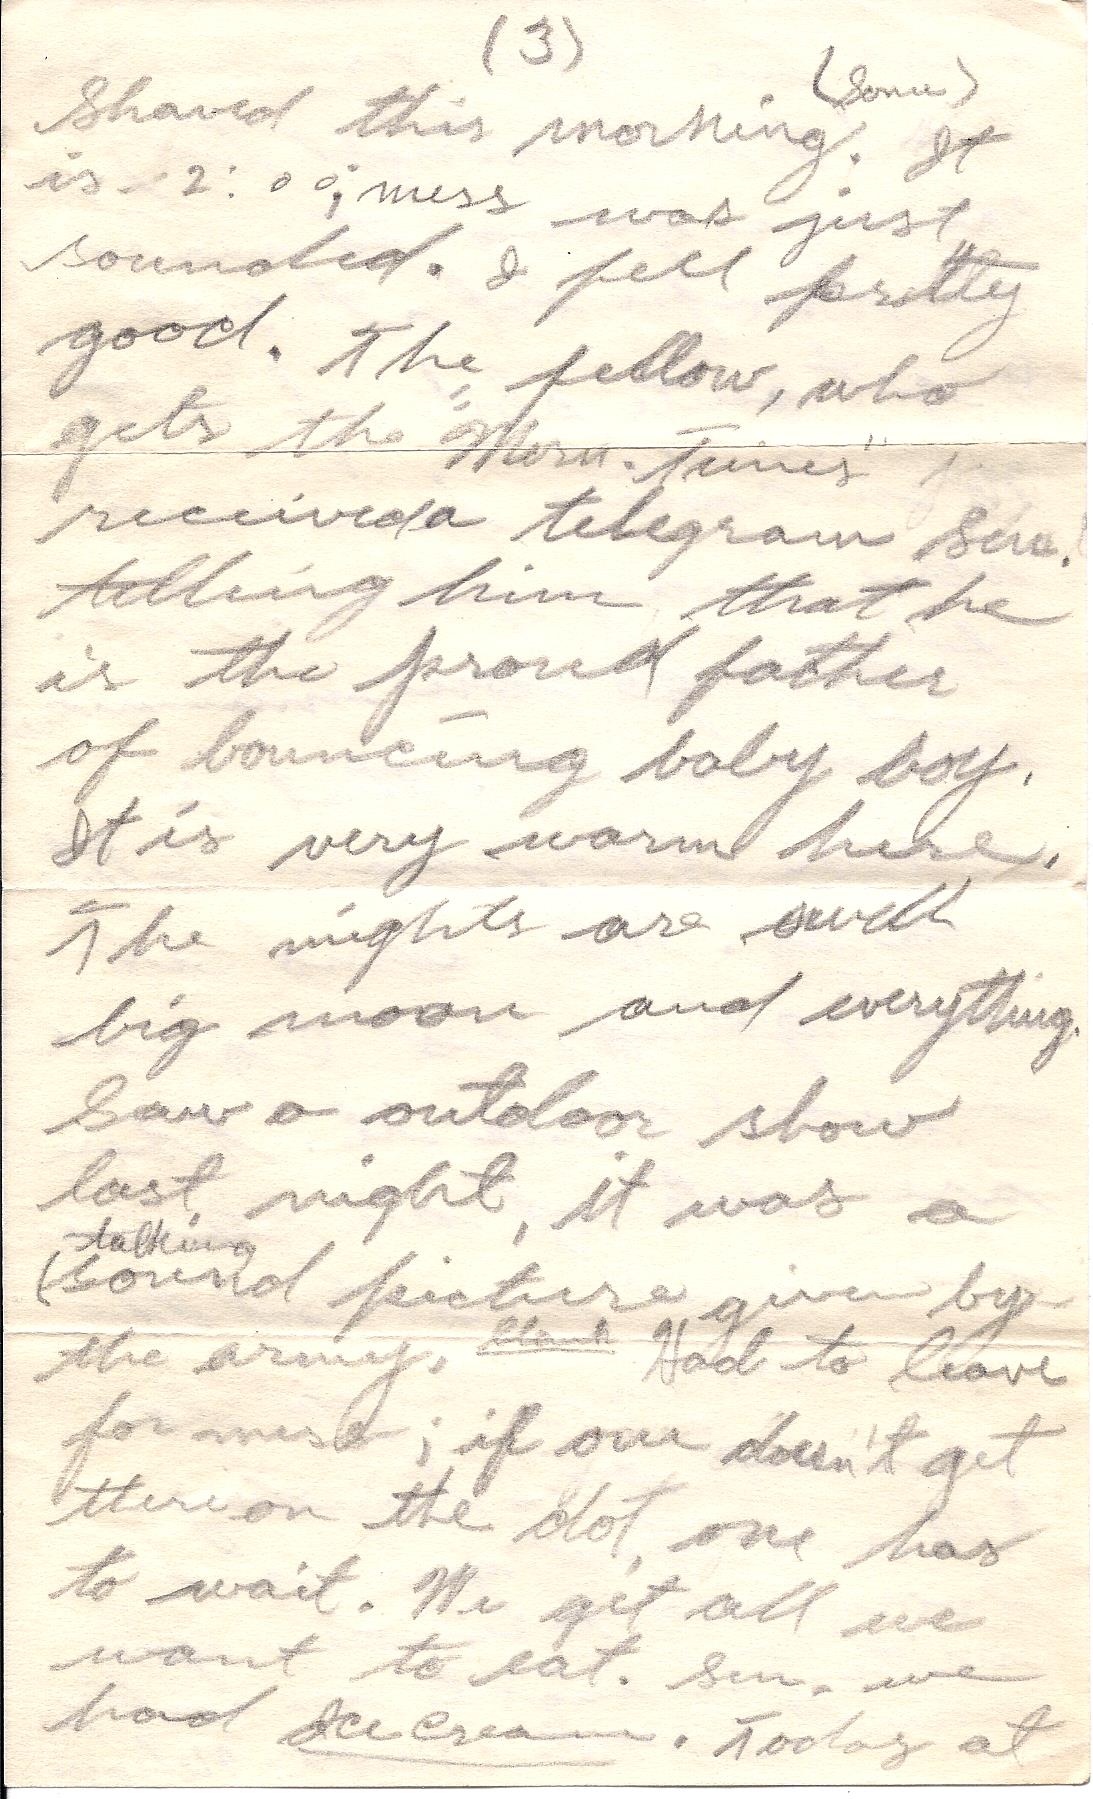 (3)
(Some)
Shaved this morning. It
is 12:00; mess was just
sounded. I fell pretty
good. The fellow, who
gets the "Morn. Times"
received a telegram Sun.
telling him that he
is the proud father
of bouncing baby boy.
It is very warm here.
The nights are swell
big moon and everything.
Saw a outdoor show
last night, it was a
talking
(sound picture given by
the army. Had to leave
for mess; if one doesn't get
there on the dot, one has
to wait. We get all we
want to eat. Sun. we
had Ice Cream. Today at